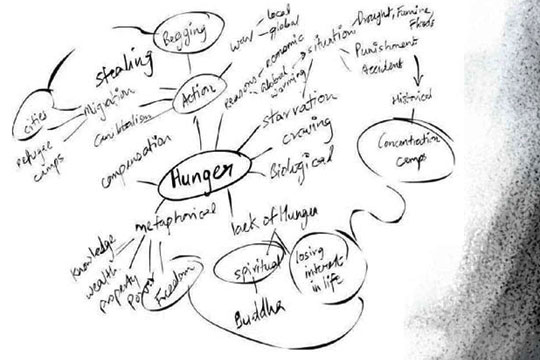 Begging
stealing
war
local
global
Reasons
economic
Global
warming
situation
Drought, Famine,
Floods
Punishment
Accident
Historical
Concentration
camps
Action
Migration
cities
refugee
camps
Canibalism
compensation
starvation
craving
Biological
Hunger
metaphorical
Knowledge
wealth
property
Power
Freedom
lack of Hunger
spiritual
Buddha
losing
interest
in life